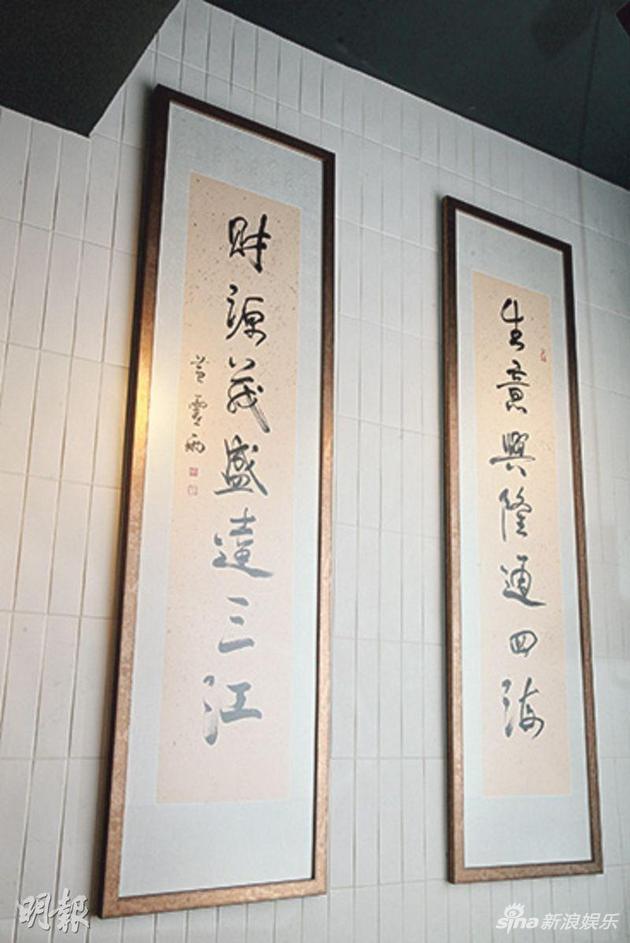 生意興隆通四海
財源茂盛達三江
明報
sina新浪娱乐